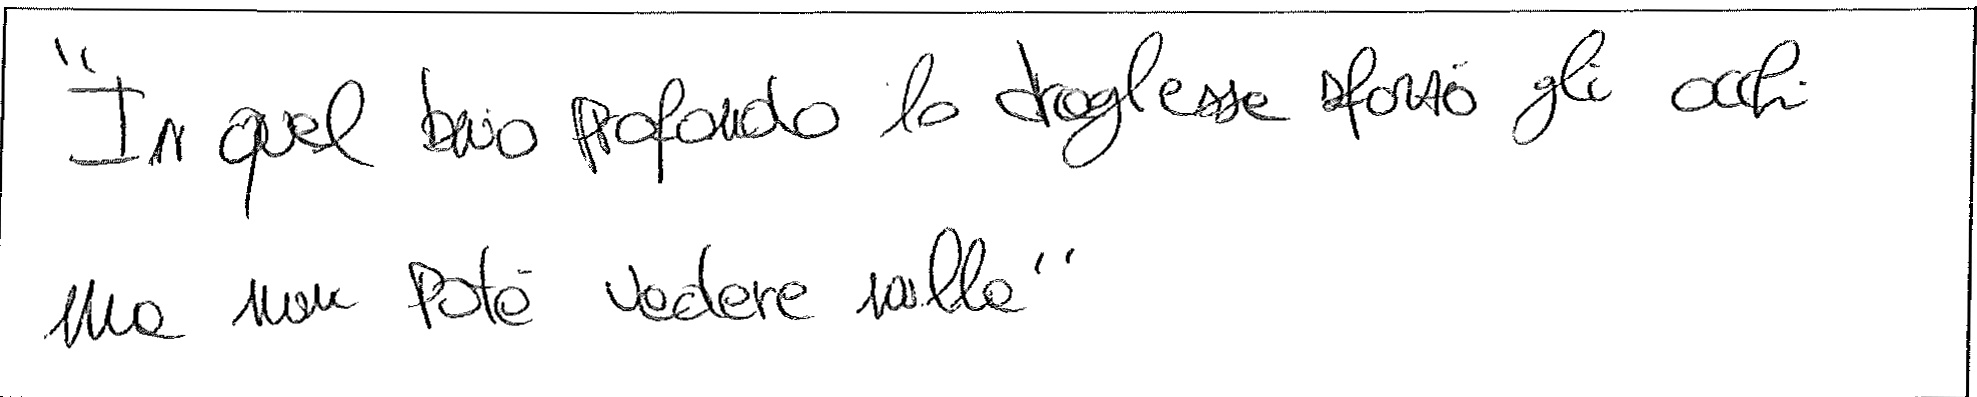 "In quel buio profondo lo draglesse sforzò gli occhi
ma non poté vedere nulla"